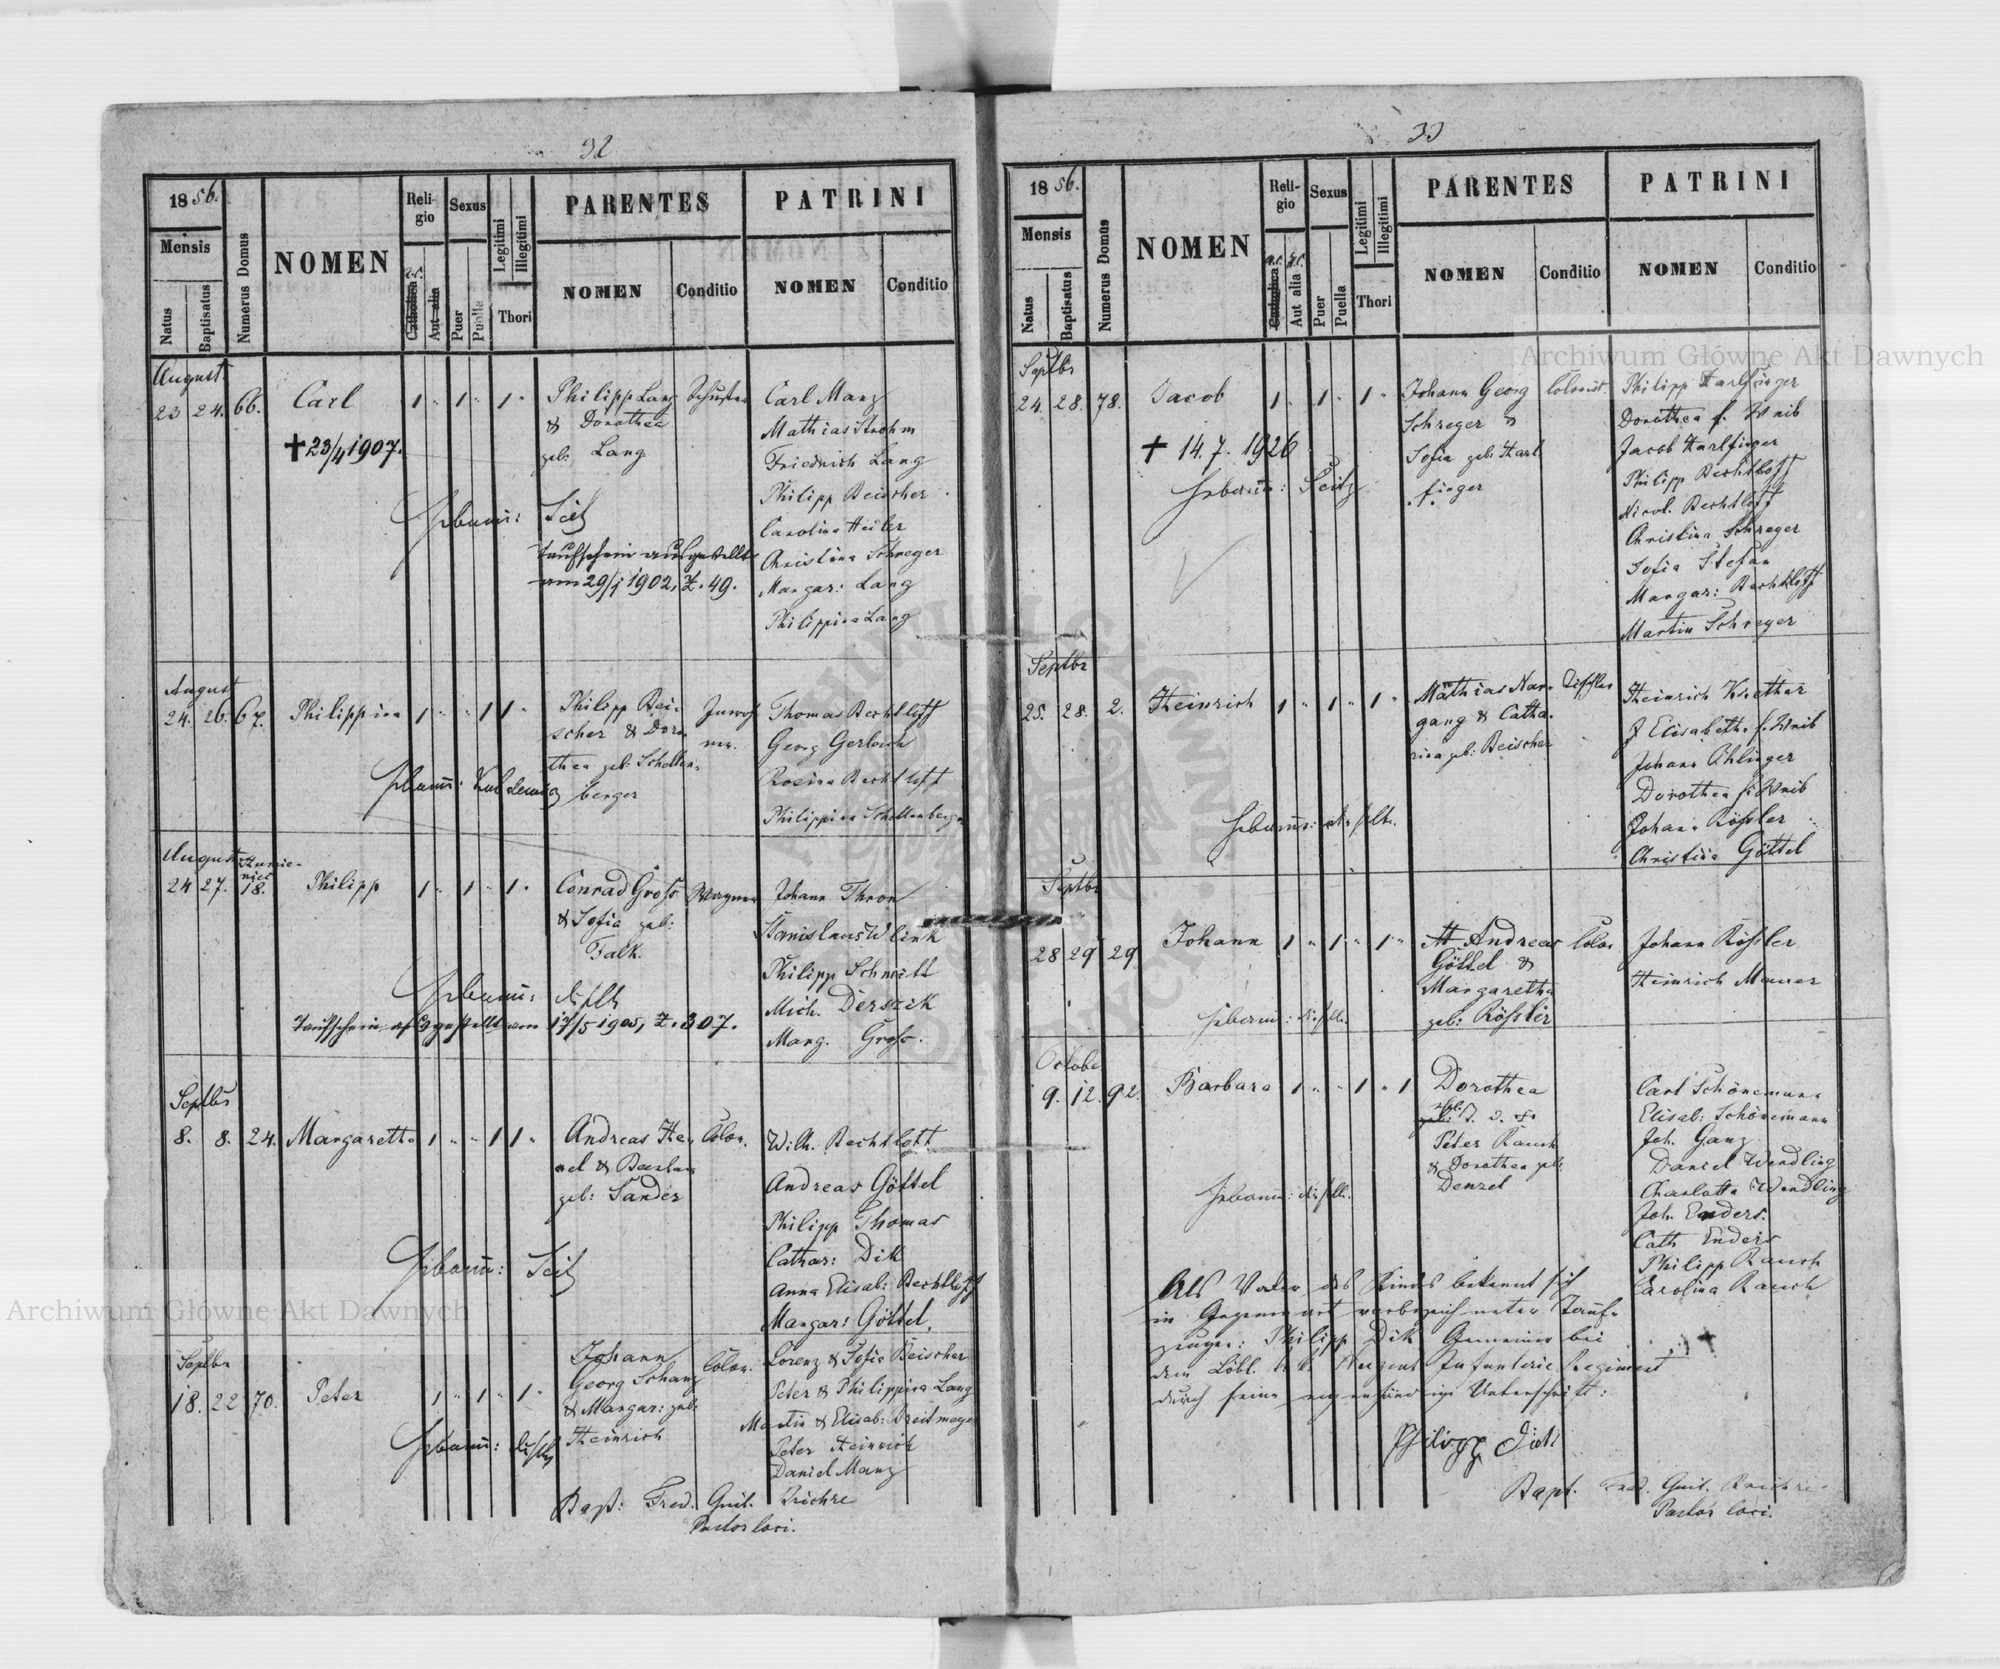 32
1856.
Mensis
Natus
Baptisatus
Numerus Domus
NOMEN
Religio
a.c.
Catholica
Aut alia
Sexus
Puer
Puella
Legitimi
Illegitimi
Thori
PARENTES
NOMEN
Conditio
PATRINI
NOMEN
Conditio
August
23 24. 66. Carl 1 " 1 " 1 "
+ 23/4 1907.
Philipp Lang Schuster
& Dorothea
geb: Lang
Hebamm: Seitz
Taufschein ausgestellt
am 29/1 1902, Z. 49.
Carl Manz
Mathias Strohm
Friedrich Lang
Philipp Beischer
Carolina Heiler
Christina Schreger
Margar: Lang
Philippina Lang
August
24. 26. 67. Philippina 1 " " 1 1 "
Philipp Bei-
scher & Doro-
thea geb: Schellen-
berger
Inwoh
ner.
Hebamm:
Thomas Bechtloff
Georg Gerlach
Rosina Bechtloff
Philippina Schellenberger
August
24 27. 18. Philipp 1 " 1 " 1 "
Conrad Gross Wagner
& Sofia geb:
Falk.
Hebamm: dieselbe
Taufschein ausgestellt am 17/5 1905, Z. 307.
Johann Thron
Stanislaus Wlink
Philipp Schmitt
Mich. Derszik
Marg. Gross.
Septbr
8. 8. 24. Margaretha 1 " " 1 1 "
Andreas Hei- Colon.
nel & Barbara
geb: Sander
Hebamm: Seitz
Wilh. Bechtloff
Andreas Göttel
Philipp Thomas
Cathar: Dik
Anna Elisab: Bechtloff
Margar: Göttel.
Septbr
18. 22 70. Peter 1 " 1 " 1 "
Johann
Georg Schanz Colon.
& Margar: geb:
Heinrich
Hebamm: dieselbe
Lorenz & Sofia Beischer
Peter & Philippina Lang
Martin & Elisab: Breitmeyer
Peter Heinrich
Daniel Manz
Bapt: Fred. Guil.
Pastor loci.
33
1856.
Mensis
Natus
Baptisatus
Numerus Domus
NOMEN
Religio
a.c.
Catholica
H.c.
Aut alia
Sexus
Puer
Puella
Legitimi
Illegitimi
Thori
PARENTES
NOMEN
Conditio
PATRINI
NOMEN
Conditio
Septbr
24. 28. 78. Jacob 1 " 1 " 1 "
+ 14. 7. 1926
Hebamm: Seitz
Johann Georg Colonist.
Schreger &
Sofia geb: Harl
finger
Philipp Harlfinger
Dorothea s. Weib
Jacob Harlfinger
Philipp Bechtloff
Nicol. Bechtloff
Christina Schreger
Sofia Stefan
Margar: Bechtloff
Martin Schreger
Septbr
25. 28. 2. Heinrich 1 " 1 " 1 "
Mathias Nar- Tischler
gang & Catha-
rina geb: Beischer
Hebamm: dieselbe.
Heinrich Krethar
& Elisabeth s. Weib
Johann Öhlinger
Dorothea s. Weib
Johann Rößler
Christina Göttel
Septbr
28 29 29 Johann 1 " 1 " 1 "
Andreas Colon
Göttel &
Margaretha
geb: Rößler
Hebamm: dieselbe.
Johann Rößler
Heinrich Maurer
October
9. 12. 92. Barbara 1 " " 1 " 1
Dorothea
Peter Rauch
& Dorothea geb:
Denzel
Hebamm: dieselbe.
Carl Schönemann
Elisab: Schönemann
Joh. Ganz
Daniel Wendling
Charlotta Wendling
Joh. Enders.
Cath Enders
Philipp Rauch
Carolina Rauch
Als Vater des Kindes bekennt sich
in Gegenwart verbezeichneter Tauf-
zeugen: Philipp Dik Gemeiner bei
dem Löbl. k. k. Nugent Infanterie Regiment
durch seine eigenhändige Unterschrift:
Philipp Dik
Bapt. Fred. Guil.
Pastor loci.
Archiwum Główne Akt Dawnych
Archiwum Główne Akt Dawnych